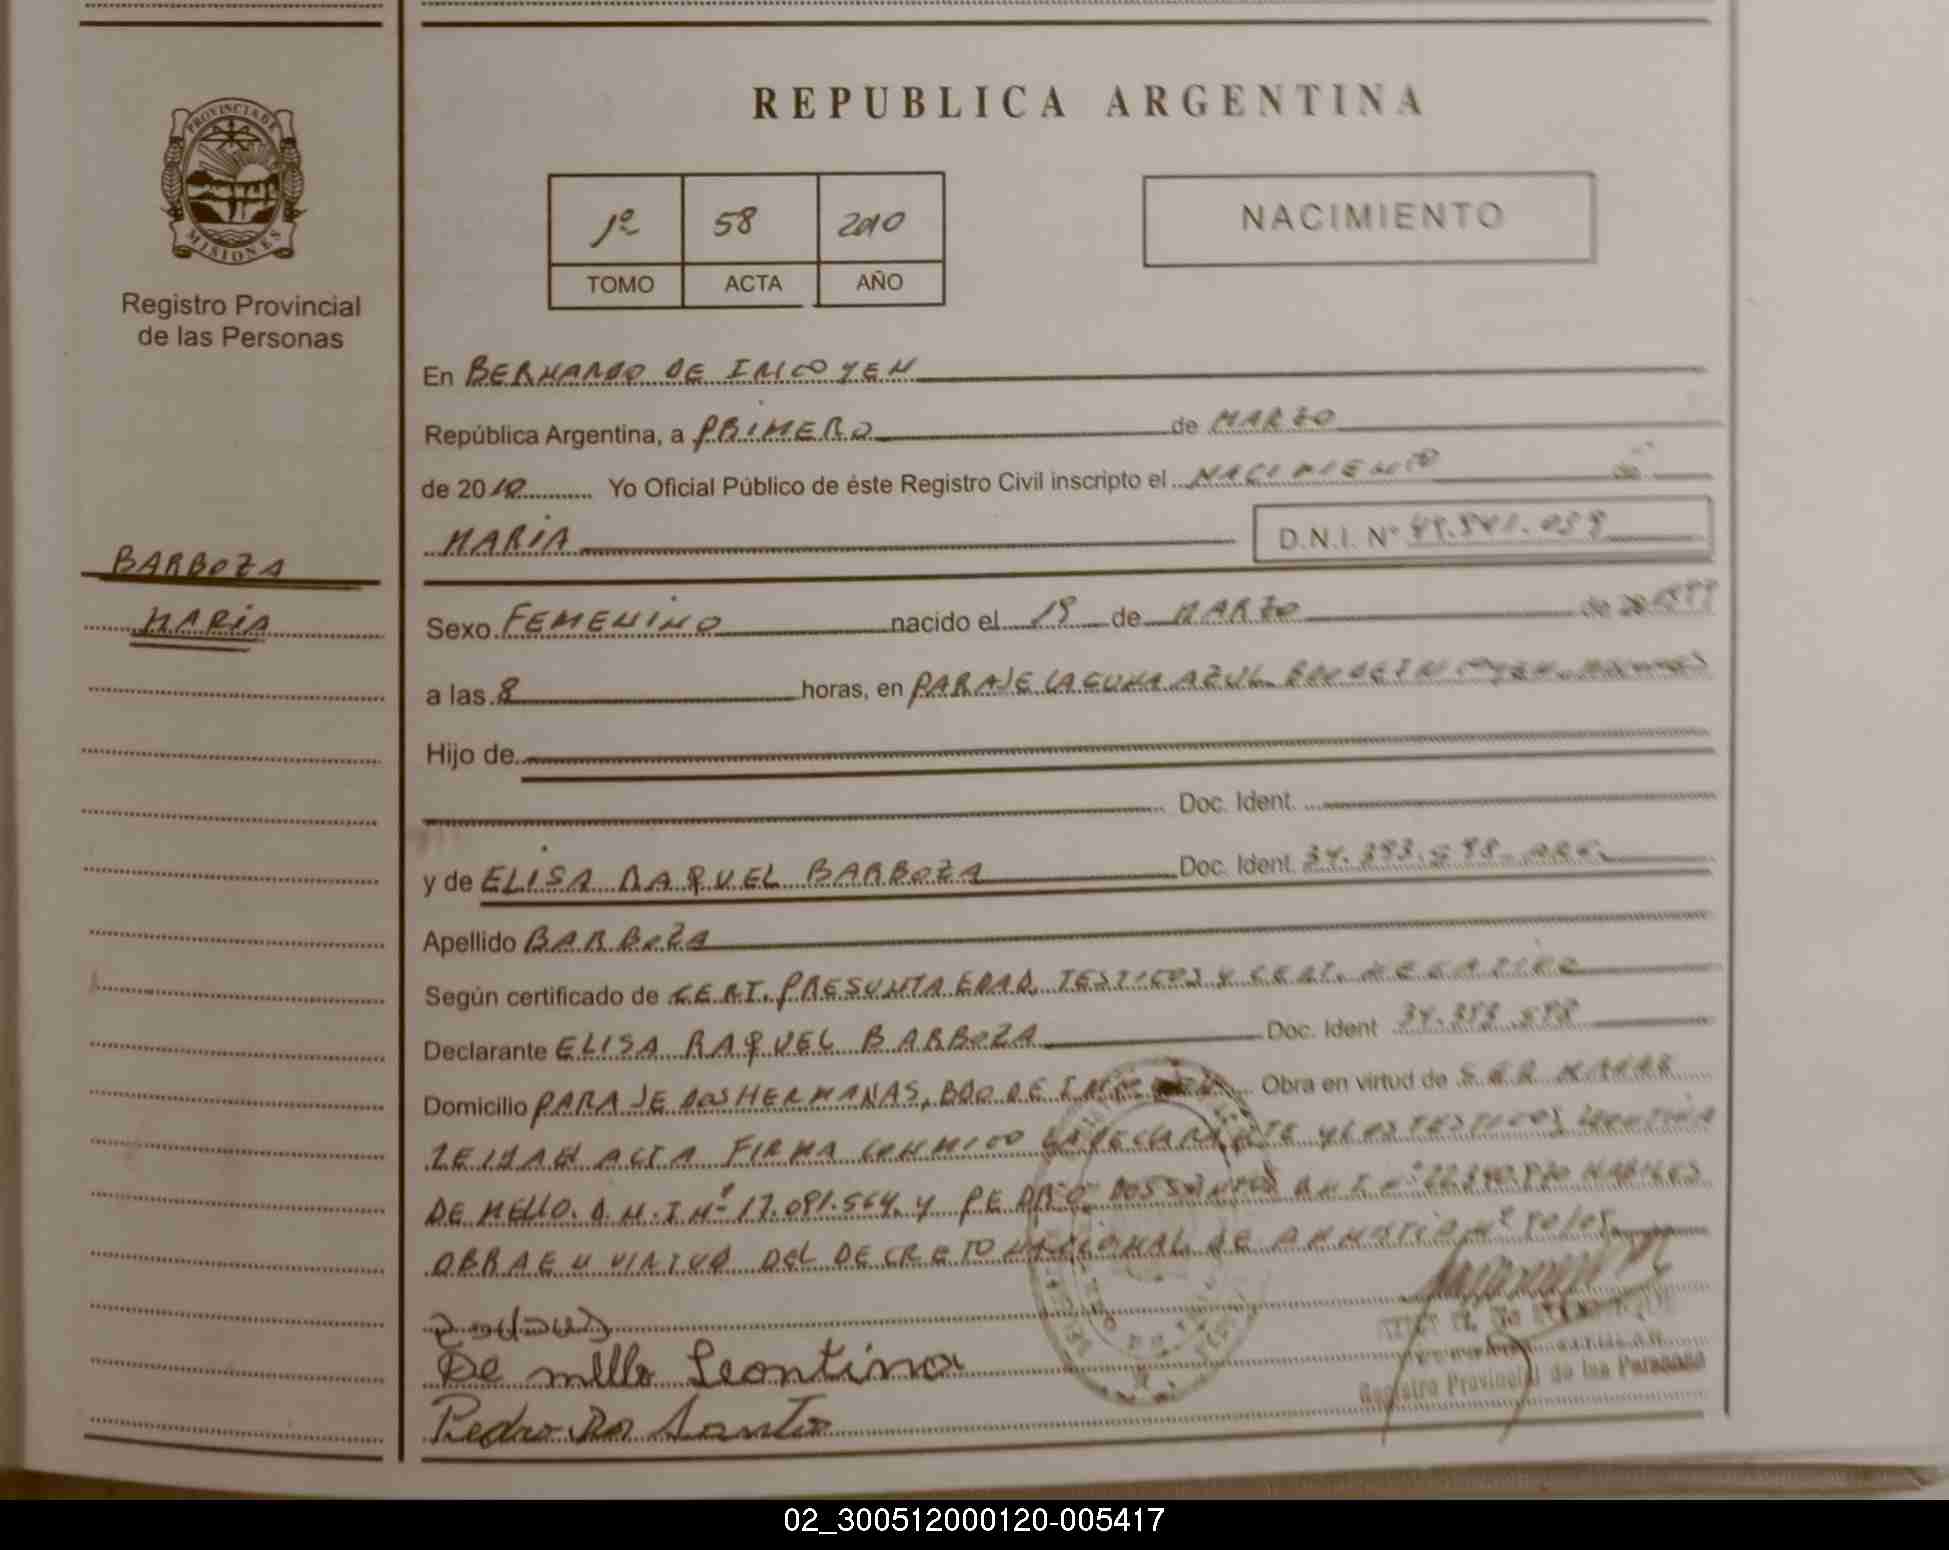 REPUBLICA ARGENTINA
PROVINCIA DE
MISIONES
Registro Provincial
de las Personas
1º 58 2010
TOMO ACTA AÑO
NACIMIENTO
En BERNARDO DE IRIGOYEN
República Argentina, a PRIMERO de MARZO
de 2010 Yo Oficial Público de éste Registro Civil inscripto el NACIMIENTO de
MARIA D.N.I. Nº
BARBOZA
MARIA
Sexo FEMENINO nacido el 19 de MARZO de
a las 8 horas, en PARAJE LAGUNA AZUL
Hijo de
Doc. Ident.
y de ELISA RAQUEL BARBOZA Doc. Ident. 34.393.598 ARG.
Apellido BARBOZA
Según certificado de CERT. PRESUNTA EDAD, TESTIGOS Y CERT. NEGATIVO
Declarante ELISA RAQUEL BARBOZA Doc. Ident 34.393.598
Domicilio PARAJE DOS HERMANAS, BDO DE Obra en virtud de SER MADRE
LEIDA EL ACTA FIRMA CONMIGO LA DECLARANTE Y LOS TESTIGOS LEONTINA
DE MELLO. D.N.I Nº 17.091.564. Y PEDRO DOS SANTOS D.N.I Nº HABILES
OBRA EN VIRTUD DEL DECRETO NACIONAL DE AMNISTIA Nº
De mello Leontina
Pedro Dos Santos
Registro Provincial de las Personas
02_300512000120-005417